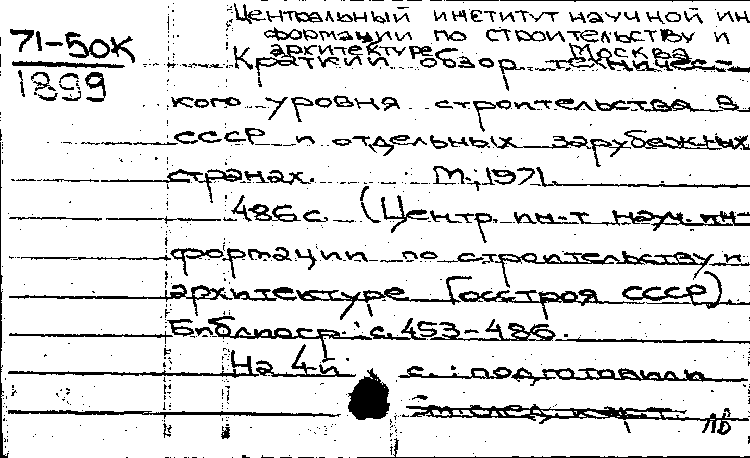 71-50К
1899
Центральный институт научной ин
формации по строительству и
архитектуре Москва
Краткий обзор техничес-
кого уровня строительства в
СССР и отдельных зарубежных
странах. М., 1971.
486 с. (Центр. ин-т науч. ин-
формации по строительству и
архитектуре Госстроя СССР).
Библиогр.: с. 453-486.
На 4-й с.: подготовили
См след карт
ЛВ